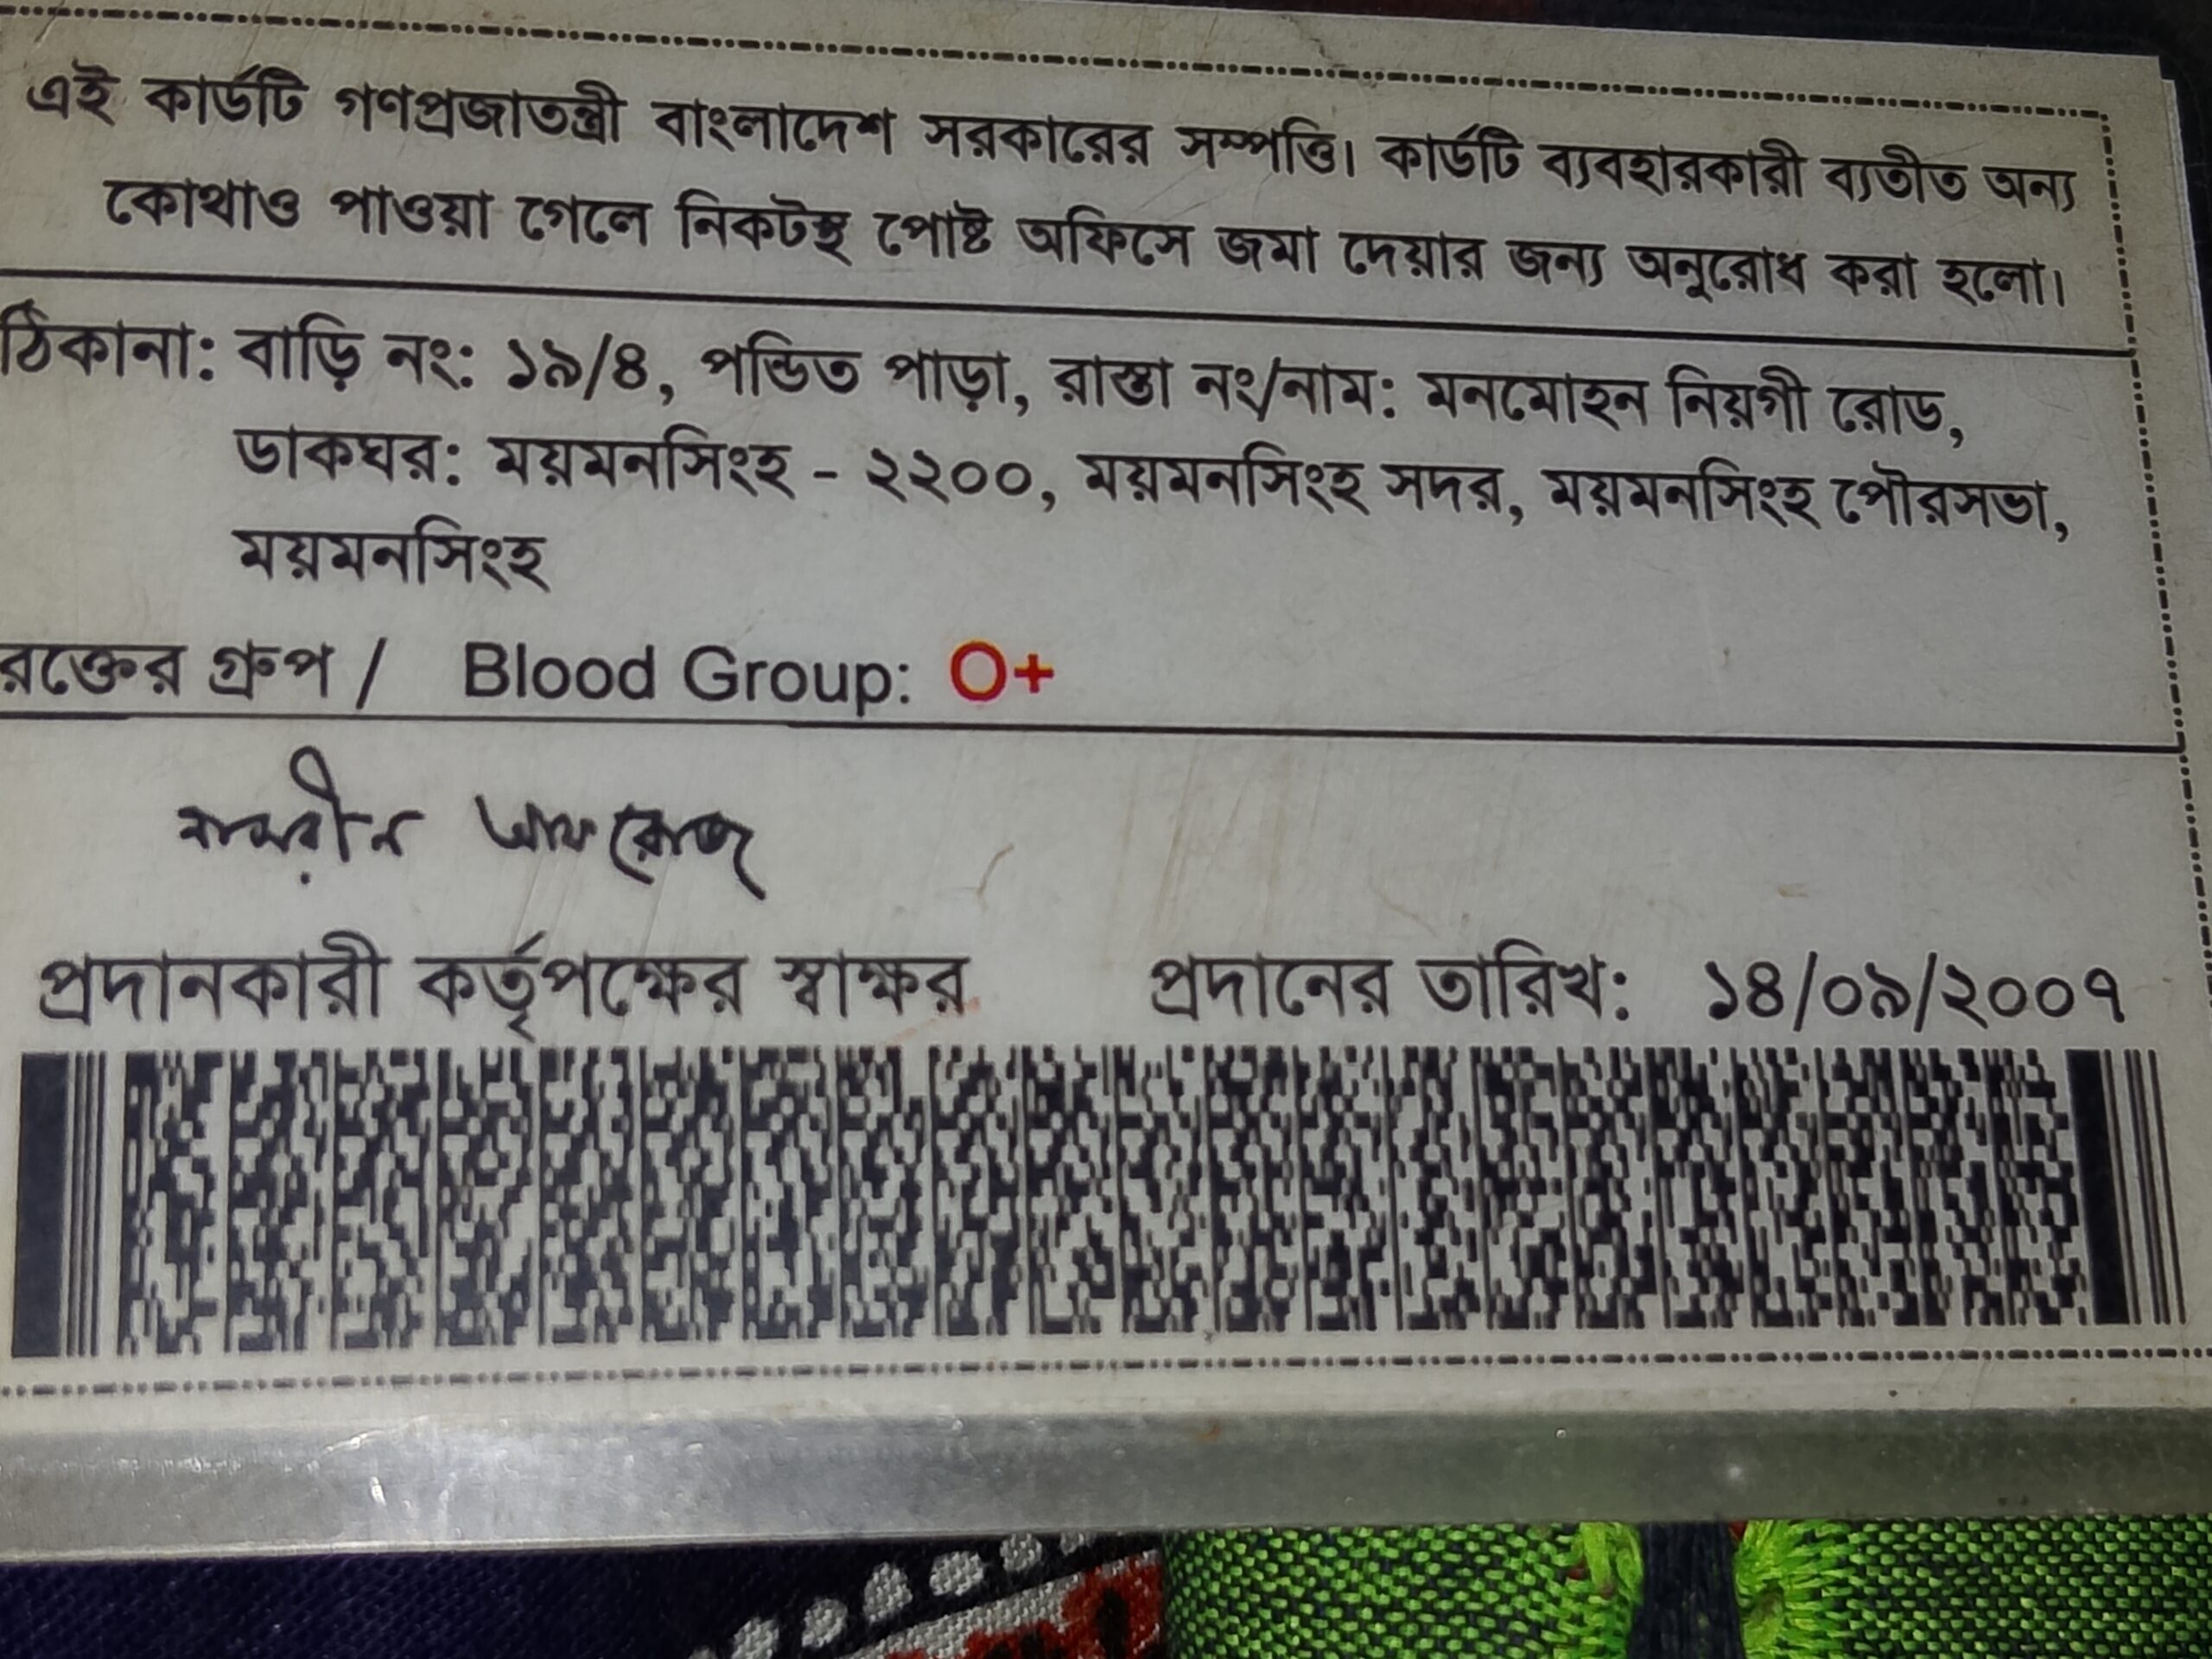 এই কার্ডটি গণপ্রজাতন্ত্রী বাংলাদেশ সরকারের সম্পত্তি। কার্ডটি ব্যবহারকারী ব্যতীত অন্য
কোথাও পাওয়া গেলে নিকটস্থ পোষ্ট অফিসে জমা দেয়ার জন্য অনুরোধ করা হলো।
ঠিকানা: বাড়ি নং: ১৯/৪, পন্ডিত পাড়া, রাস্তা নং/নাম: মনমোহন নিয়গী রোড,
ডাকঘর: ময়মনসিংহ - ২২০০, ময়মনসিংহ সদর, ময়মনসিংহ পৌরসভা,
ময়মনসিংহ
রক্তের গ্রুপ / Blood Group: O+
আফরোজ
প্রদানকারী কর্তৃপক্ষের স্বাক্ষর প্রদানের তারিখ: ১৪/০৯/২০০৭